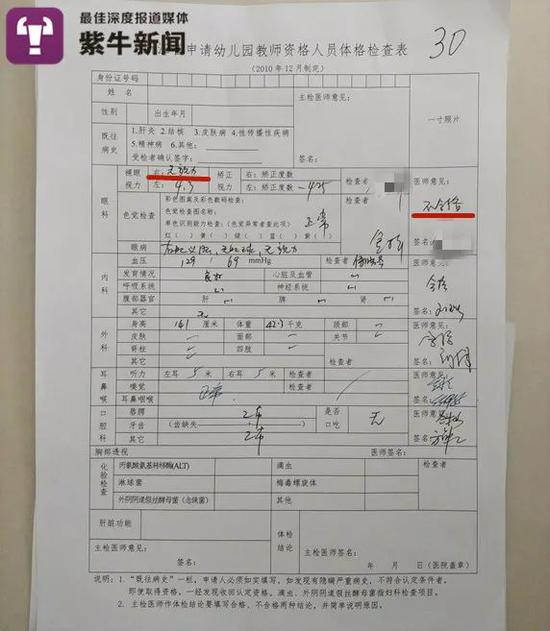 最佳深度报道媒体
紫牛新闻
申请幼儿园教师资格人员体格检查表
30
(2010年12月制定)
身份证号码
姓名
主检医师意见:
一寸照片
性别 出生年月
既往病史
1.肝炎 2.结核 3.皮肤病 4.性传播性疾病
5.精神病 6.其他:
受检者确认签字:
签名:
眼科
裸眼视力 右:无视力 矫正视力 右:矫正度数 检查者 医师意见:
左:4.3 左:矫正度数 -425 不合格
色觉检查
彩色图案及彩色数码检查:
色觉检查图名称:
单色识别能力检查:(色觉异常者查此项)
红( ) 黄( ) 绿( ) 蓝( ) 紫( )
正常
检查者
签名:
眼病 无视力
内科
血压 129 / 69 mmHg 检查者 医师意见:
发育情况 良好 心脏及血管
呼吸系统 神经系统 合格
腹部器官 肝 脾 肾
其它 无 签名:
外科
身高 厘米 体重 千克 颈部 医师意见:
皮肤 面部 关节
脊柱 四肢
其它 检查者 签名:
耳鼻喉
听力 左耳 5 米 右耳 5 米 检查者 医师意见:
嗅觉 检查者
耳鼻咽喉 正常 签名:
口腔科
唇腭 正常 是否口吃 无 医师意见:
牙齿 (齿缺失 + ) 正常
签名:
胸部透视 医师签名:
化验检查
丙氨酸氨基转移酶(ALT) 滴虫 检查者
淋球菌 梅毒螺旋体
外阴阴道假丝酵母菌(念珠菌) 其他
肝脏功能
主检医师意见:
签名:
体检结论
主检医师签名:
年 月 日(医院盖章)
说明:1.“既往病史”一栏,申请人必须如实填写,如发现有隐瞒严重病史,不符合认定条件者,
即使取得资格,一经发现收回认定资格。滴虫、外阴阴道假丝酵母菌指妇科检查项目。
2.主检医师作体检结论要填写合格、不合格两种结论,并简单说明原因。